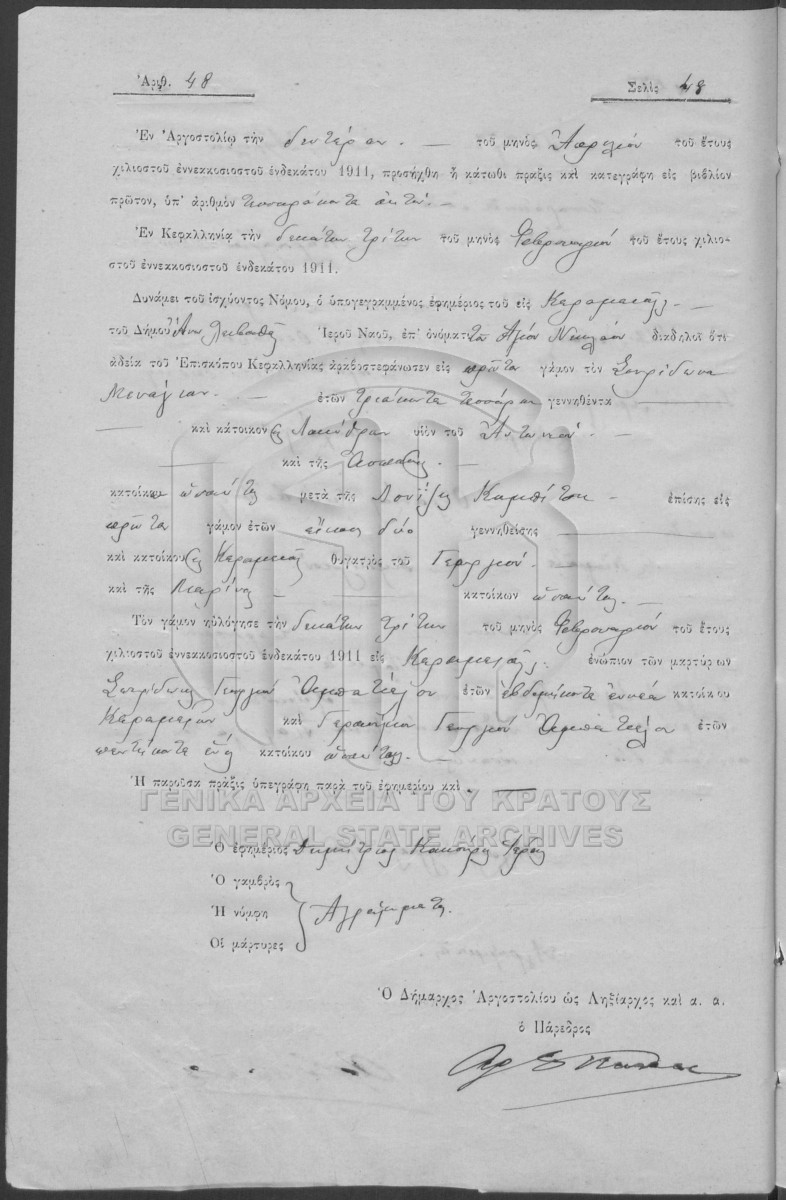 Ἀριθ. 48 Σελὶς 48
Ἐν Ἀργοστολίῳ τὴν δευτέραν. — τοῦ μηνὸς Ἀπριλίου τοῦ ἔτους
χιλιοστοῦ ἐννεακοσιοστοῦ ἑνδεκάτου 1911, προσήχθη ἡ κάτωθι πρᾶξις καὶ κατεγράφη εἰς βιβλίον
πρῶτον, ὑπ' ἀριθμὸν τεσσαράκοντα ὀκτώ. —
Ἐν Κεφαλληνίᾳ τὴν δεκάτην τρίτην τοῦ μηνὸς Φεβρουαρίου τοῦ ἔτους χιλιο-
στοῦ ἐννεακοσιοστοῦ ἑνδεκάτου 1911.
Δυνάμει τοῦ ἰσχύοντος Νόμου, ὁ ὑπογεγραμμένος ἐφημέριος τοῦ εἰς —
τοῦ Δήμου Ἱεροῦ Ναοῦ, ἐπ' ὀνόματι τοῦ Ἁγίου Νικολάου διαδηλοῖ ὅτι
ἀδείᾳ τοῦ Ἐπισκόπου Κεφαλληνίας ἀῤῥαβωστεφάνωσεν εἰς πρῶτον γάμον τὸν Σπυρίδωνα
— ἐτῶν τριάκοντα τεσσάρων γεννηθέντα —
— καὶ κάτοικον εἰς Λακήθραν υἱὸν τοῦ Ἀντωνίου. —
— καὶ τῆς —
κατοίκων ὡσαύτως μετὰ τῆς Λουΐζης — ἐπίσης εἰς
πρῶτον γάμον ἐτῶν εἴκοσι δύο γεννηθείσης —
καὶ κατοίκου εἰς θυγατρὸς τοῦ Γεωργίου. —
καὶ τῆς Μαρίνας — κατοίκων ὡσαύτως. —
Τὸν γάμον ηὐλόγησε τὴν δεκάτην τρίτην τοῦ μηνὸς Φεβρουαρίου τοῦ ἔτους
χιλιοστοῦ ἐννεακοσιοστοῦ ἑνδεκάτου 1911 εἰς ἐνώπιον τῶν μαρτύρων
Σπυρίδωνος Γεωργίου Ἀμπατιέλου ἐτῶν ἑβδομήκοντα ἐννέα κατοίκου
καὶ Γερασίμου Γεωργίου Ἀμπατιέλου ἐτῶν
πεντήκοντα ἑνὸς κατοίκου ὡσαύτως. —
Ἡ παροῦσα πρᾶξις ὑπεγράφη παρὰ τοῦ ἐφημερίου καὶ. —
ΓΕΝΙΚΑ ΑΡΧΕΙΑ ΤΟΥ ΚΡΑΤΟΥΣ
GENERAL STATE ARCHIVES
Ὁ ἐφημέριος Δημήτριος Ἱερεὺς
Ὁ γαμβρὸς
Ἡ νύμφη Ἀγράμματοι.
Οἱ μάρτυρες
Ὁ Δήμαρχος Ἀργοστολίου ὡς Ληξίαρχος καὶ α. α.
ὁ Πάρεδρος